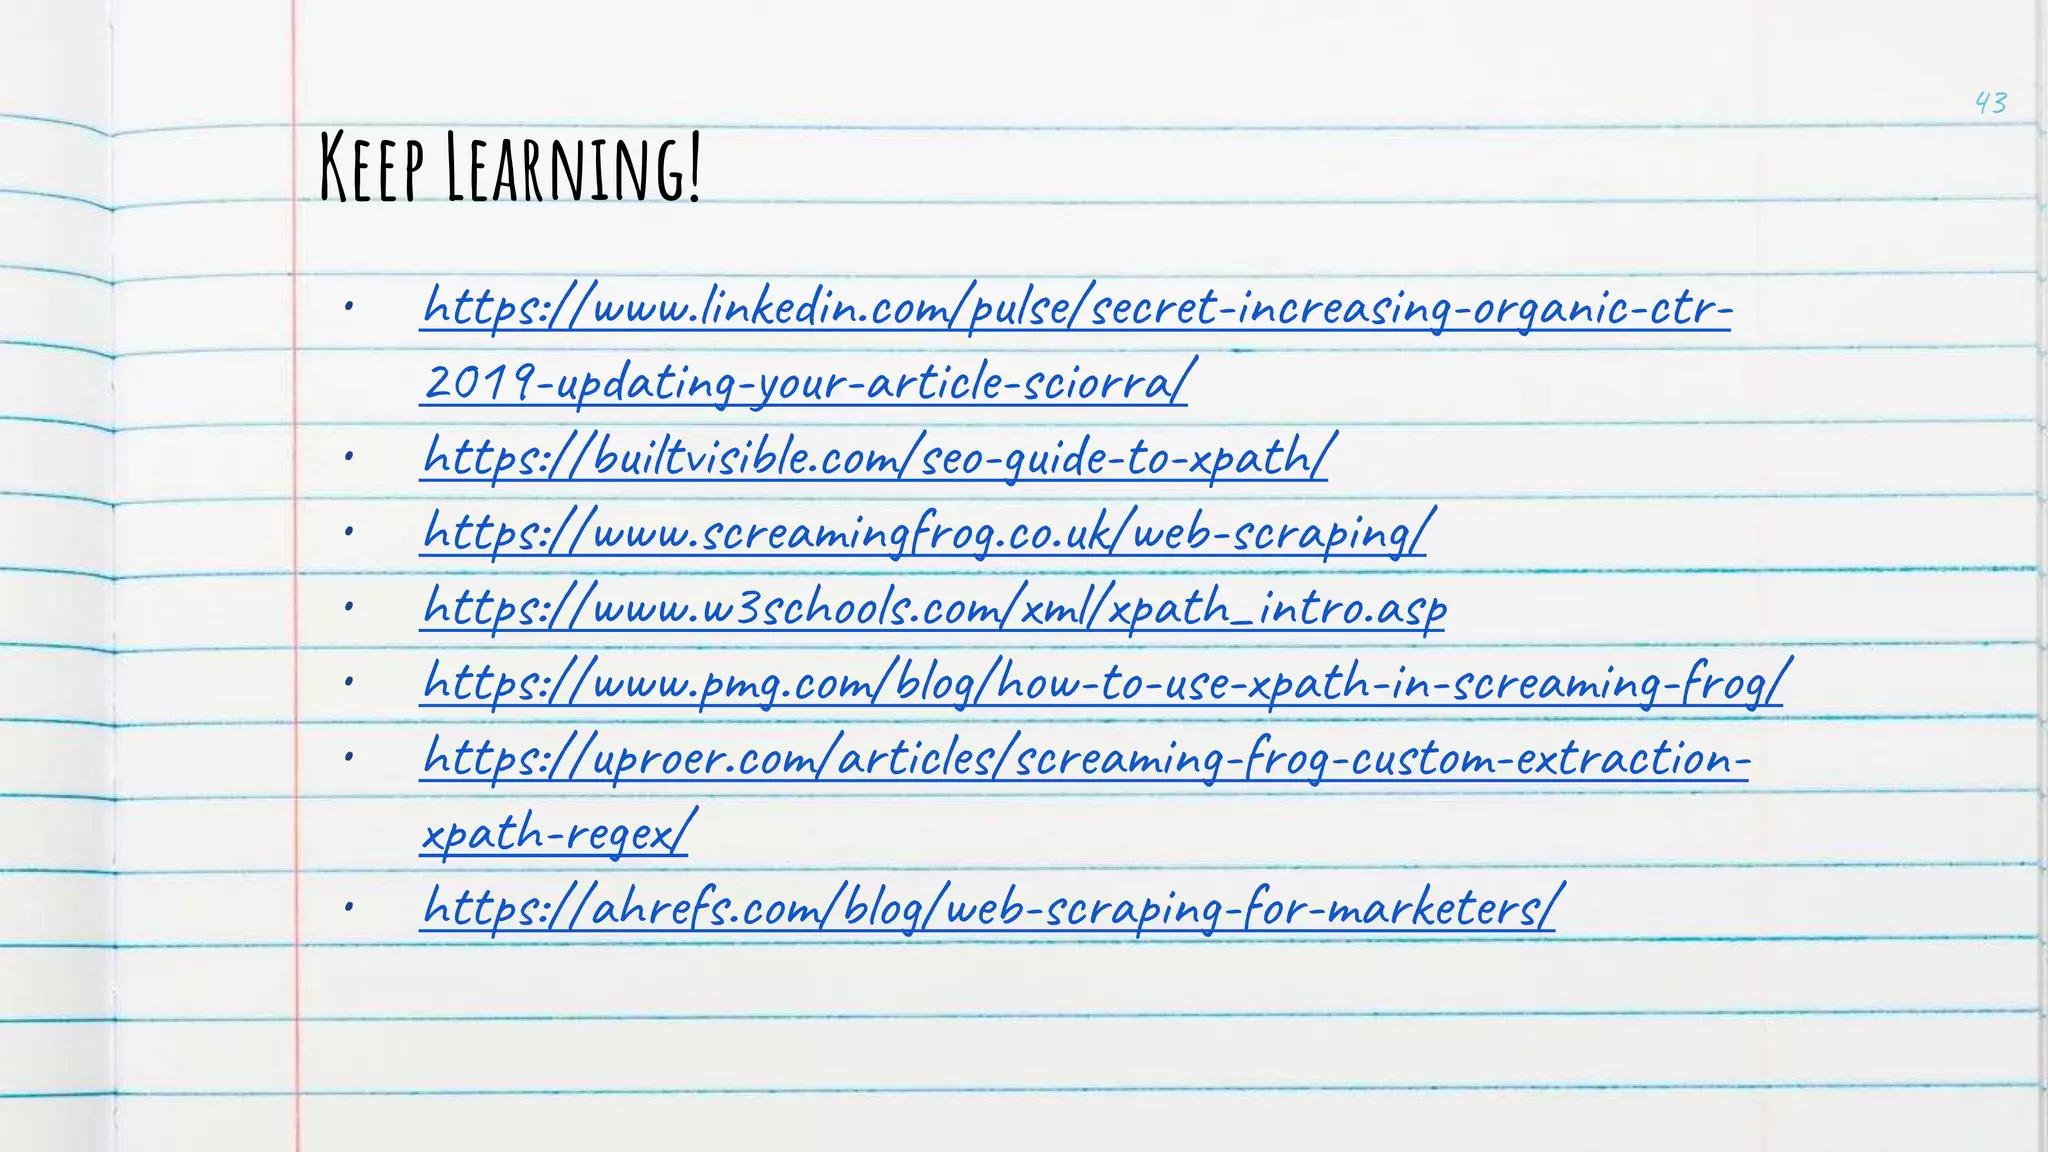 43
Keep Learning!
• https://www.linkedin.com/pulse/secret-increasing-organic-ctr-
2019-updating-your-article-sciorra/
• https://builtvisible.com/seo-guide-to-xpath/
• https://www.screamingfrog.co.uk/web-scraping/
• https://www.w3schools.com/xml/xpath_intro.asp
• https://www.pmg.com/blog/how-to-use-xpath-in-screaming-frog/
• https://uproer.com/articles/screaming-frog-custom-extraction-
xpath-regex/
• https://ahrefs.com/blog/web-scraping-for-marketers/